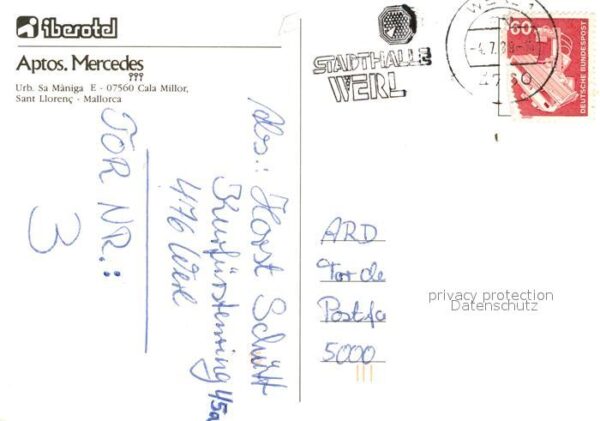 iberotel
Aptos. Mercedes
Urb. Sa Màniga E - 07560 Cala Millor,
Sant Llorenç - Mallorca
TOR NR.:
3
Abs.: Horst Schütt
Kurfürstenring 45a
476 Werl
STADTHALLE
WERL
WERL 1
-4.7.89-
4760
60
DEUTSCHE BUNDESPOST
ARD
Tor de
Postfa
5000
privacy protection
Datenschutz